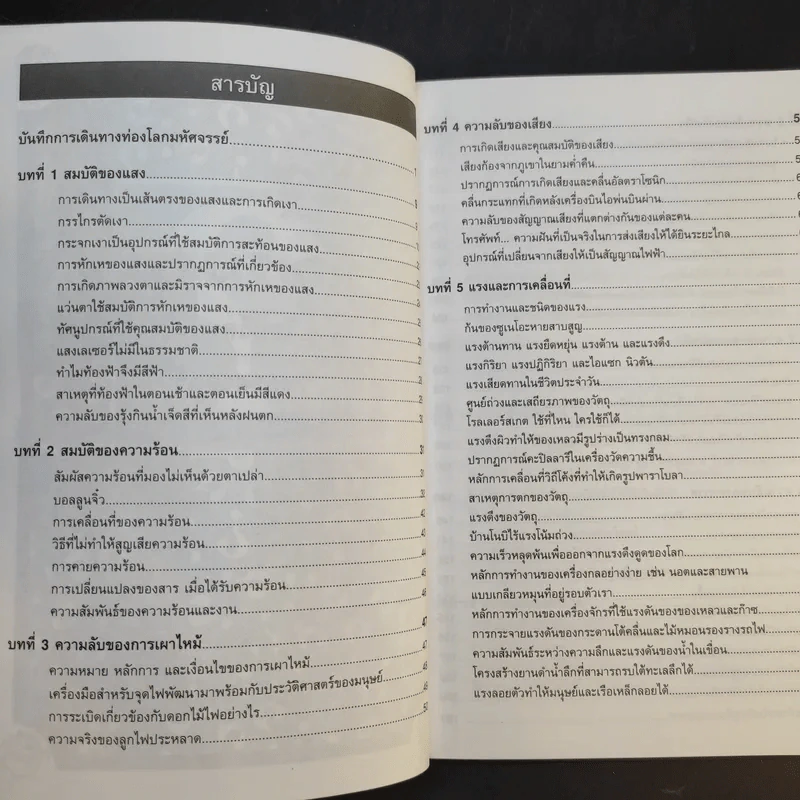 สารบัญ
บันทึกการเดินทางท่องโลกมหัศจรรย์
บทที่ 1 สมบัติของแสง
การเดินทางเป็นเส้นตรงของแสงและการเกิดเงา
กรรไกรตัดเงา
กระจกเงาเป็นอุปกรณ์ที่ใช้สมบัติการสะท้อนของแสง
การหักเหของแสงและปรากฏการณ์ที่เกี่ยวข้อง
การเกิดภาพลวงตาและมิราจจากการหักเหของแสง
แว่นตาใช้สมบัติการหักเหของแสง
ทัศนูปกรณ์ที่ใช้คุณสมบัติของแสง
แสงเลเซอร์ไม่มีในธรรมชาติ
ทำไมท้องฟ้าจึงมีสีฟ้า
สาเหตุที่ท้องฟ้าในตอนเช้าและตอนเย็นมีสีแดง
ความลับของรุ้งกินน้ำเจ็ดสีที่เห็นหลังฝนตก
บทที่ 2 สมบัติของความร้อน 31
สัมผัสความร้อนที่มองไม่เห็นด้วยตาเปล่า
บอลลูนจิ๋ว
การเคลื่อนที่ของความร้อน
วิธีที่ไม่ทำให้สูญเสียความร้อน
การคายความร้อน 44
การเปลี่ยนแปลงของสาร เมื่อได้รับความร้อน 45
ความสัมพันธ์ของความร้อนและงาน
บทที่ 3 ความลับของการเผาไหม้ 47
ความหมาย หลักการ และเงื่อนไขของการเผาไหม้ 47
เครื่องมือสำหรับจุดไฟพัฒนามาพร้อมกับประวัติศาสตร์ของมนุษย์ 48
การระเบิดเกี่ยวข้องกับดอกไม้ไฟอย่างไร 49
ความจริงของลูกไฟประหลาด 50
บทที่ 4 ความลับของเสียง
การเกิดเสียงและคุณสมบัติของเสียง
เสียงก้องจากภูเขาในยามค่ำคืน
ปรากฏการณ์การเกิดเสียงและคลื่นอัลตราโซนิก
คลื่นกระแทกที่เกิดหลังเครื่องบินไอพ่นบินผ่าน
ความลับของสัญญาณเสียงที่แตกต่างกันของแต่ละคน
โทรศัพท์... ความฝันที่เป็นจริงในการส่งเสียงให้ได้ยินระยะไกล
อุปกรณ์ที่เปลี่ยนจากเสียงให้เป็นสัญญาณไฟฟ้า
บทที่ 5 แรงและการเคลื่อนที่
การทำงานและชนิดของแรง
ก้นของซูเนโอะหายสาบสูญ
แรงต้านทาน แรงยืดหยุ่น แรงต้าน และแรงดึง
แรงกิริยา แรงปฏิกิริยา และไอแซก นิวตัน
แรงเสียดทานในชีวิตประจำวัน
ศูนย์ถ่วงและเสถียรภาพของวัตถุ
โรลเลอร์สเกต ใช้ที่ไหน ใครใช้ก็ได้
แรงตึงผิวทำให้ของเหลวมีรูปร่างเป็นทรงกลม
ปรากฏการณ์คะปิลลารีในเครื่องวัดความชื้น
หลักการเคลื่อนที่วิถีโค้งที่ทำให้เกิดรูปพาราโบลา
สาเหตุการตกของวัตถุ
แรงดึงของวัตถุ
บ้านโนบิไร้แรงโน้มถ่วง
ความเร็วหลุดพ้นเพื่อออกจากแรงดึงดูดของโลก
หลักการทำงานของเครื่องกลอย่างง่าย เช่น นอตและสายพาน
แบบเกลียวหมุนที่อยู่รอบตัวเรา
หลักการทำงานของเครื่องจักรที่ใช้แรงดันของของเหลวและก๊าซ
การกระจายแรงดันของกระดานโต้คลื่นและไม้หมอนรองรางรถไฟ
ความสัมพันธ์ระหว่างความลึกและแรงดันของน้ำในเขื่อน
โครงสร้างยานดำน้ำลึกที่สามารถรบใต้ทะเลลึกได้
แรงลอยตัวทำให้มนุษย์และเรือเหล็กลอยได้